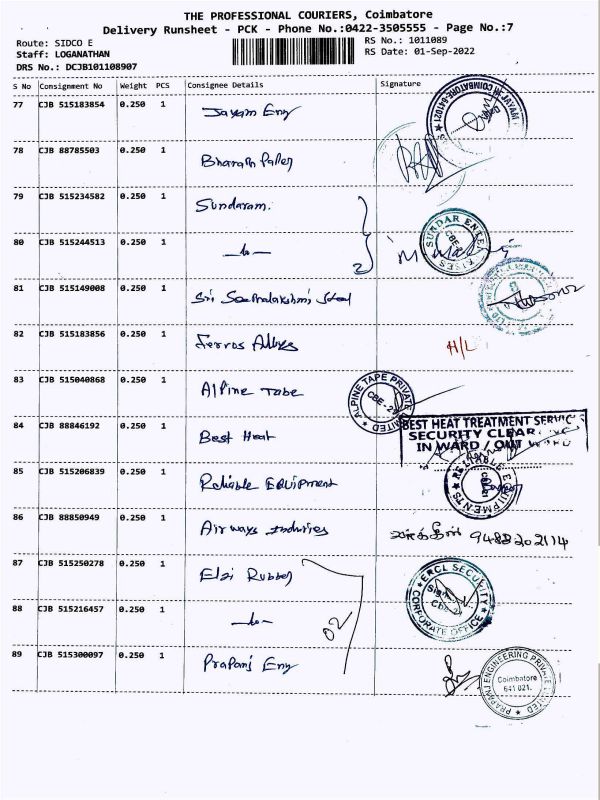 THE PROFESSIONAL COURIERS, Coimbatore
Delivery Runsheet - PCK - Phone No.:0422-3505555 - Page No.:7
Route: SIDCO E RS No.: 1011089
Staff: LOGANATHAN RS Date: 01-Sep-2022
DRS No.: DCJB101108907
S No Consignment No Weight PCS Consignee Details Signature
77 CJB 515183854 0.250 1 Jayam Eng
78 CJB 88785503 0.250 1 Bharath
79 CJB 515234582 0.250 1 Sundaram.
80 CJB 515244513 0.250 1 -do- 2
SUNDAR
81 CJB 515149008 0.250 1 Sri Steel
82 CJB 515183856 0.250 1 Ferros Alloys H/L
83 CJB 515040868 0.250 1 Alpine Tape
ALPINE TAPE PRIVATE LIMITED
84 CJB 88846192 0.250 1 Best Heat
BEST HEAT TREATMENT SERVIC
SECURITY CLEAR
IN WARD / OUT WARD
85 CJB 515206839 0.250 1 Reliable Equipment
RELIABLE EQUIPMENTS
86 CJB 88850949 0.250 1 Airways
87 CJB 515250278 0.250 1 Elgi Rubber
ERCL SECURITY
CORPORATE OFFICE
88 CJB 515216457 0.250 1 -do- 02
89 CJB 515300097 0.250 1 Prapanj Eng
PRAPANJ ENGINEERING PRIVATE LIMITED
Coimbatore
641 021.